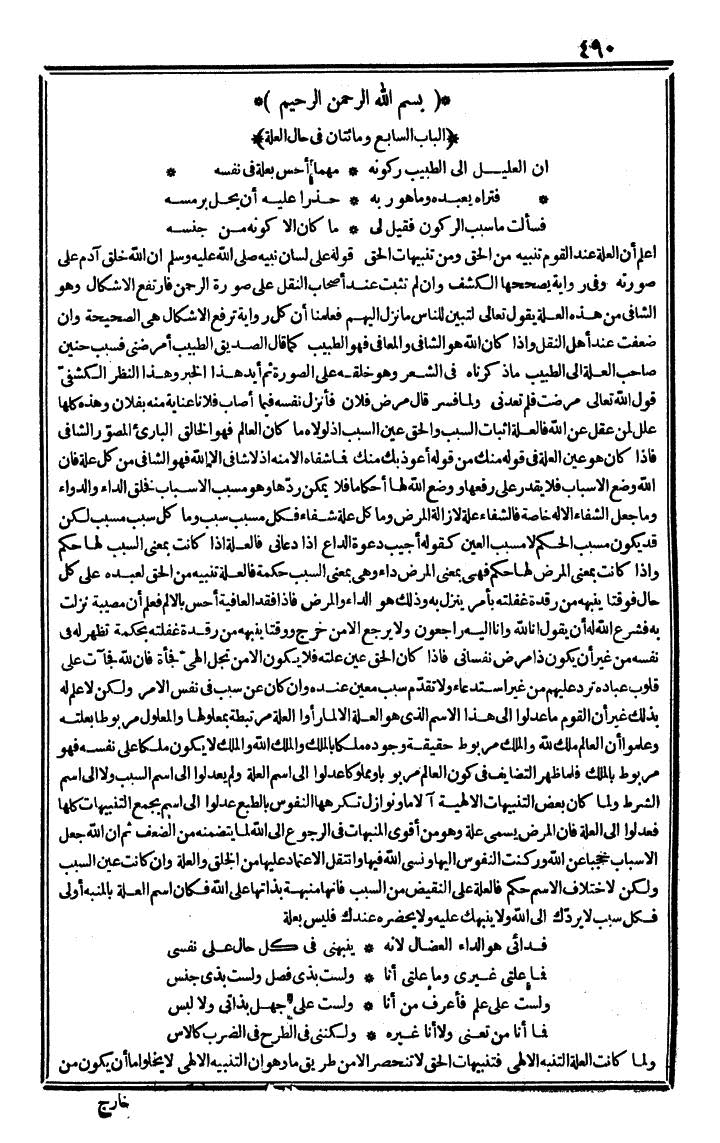 ٤٩٠
*( بسم الله الرحمن الرحيم )*
*(الباب السابع ومائتان فى حال العلة)*
ان العليـل الى الطبيب ركونه * مهما أحس بعلة فى نفسه *
* فتراه يعبده وماهو ربه * حذرا عليه أن يحل برمسه
فسألت ماسبب الركون فقيل لى * ما كان الا كونه من جنسه
اعلم أن العلة عند القوم تنبيه من الحق ومن تنبيهات الحق قوله على لسان نبيه صلى الله عليه وسلم ان الله خلق آدم على
صورته وفى رواية يصححها الكشف وان لم تثبت عند أصحاب النقل على صورة الرحمن فارتفع الاشكال وهو
الشافى من هذه العلة يقول تعالى لتبين للناس ما نزل اليهم فعلمنا أن كل رواية ترفع الاشكال هى الصحيحة وان
ضعفت عند أهل النقل واذا كان الله هو الشافى والمعافى فهو الطبيب كما قال الصديق الطبيب أمرضنى فسبب حنين
صاحب العلة الى الطبيب ماذ كرناه فى الشعر وهو خلقه على الصورة ثم أيد هذا الخبر وهذا النظر الكشفىّ
قول الله تعالى مرضت فلم تعدنى ولما فسر قال مرض فلان فأنزل نفسه فيما أصاب فلانا عناية منه بفلان وهذه كلها
علل لمن عقل عن الله فالعلة اثبات السبب والحق عين السبب اذ لولاه ما كان العالم فهو الخالق البارئ المصوّر الشافى
فاذا كان هو عين العلة فى قوله منك من قوله أعوذ بك منك فما شفاه الامنه اذ لا شافى الا الله فهو الشافى من كل علة فان
الله وضع الاسباب فلا يقدر على رفعها ووضع الله لها أحكاما فلا يمكن ردّها وهو مسبب الاسباب خلق الداء والدواء
وما جعل الشفاء الاله خاصة فالشفاء علة لازالة المرض وما كل علة شفاء فكل مسبب سبب وما كل سبب مسبب لكن
قد يكون مسبب الحكم لا مسبب العين كقوله أجيب دعوة الداع اذا دعانى فالعلة اذا كانت بمعنى السبب لها حكم
واذا كانت بمعنى المرض لها حكم فهى بمعنى المرض داء وهى بمعنى السبب حكمة فالعلة تنبيه من الحق لعبده على كل
حال فوقتا ينبهه من رقدة غفلته بأمر ينزل به وذلك هو الداء والمرض فاذا فقد العافية أحس بالالم فعلم أن مصيبة نزلت
به فشرع الله له أن يقول انا لله وانا اليه راجعون ولا يرجع الامن خرج ووقتا ينبهه من رقدة غفلته بحكمة تظهر له فى
نفسه من غير أن يكون ذا مرض نفسانى فاذا كان الحق عين علته فلا يكون الامن تجل الهىّ فجأة فان لله فجآت على
قلوب عباده ترد عليهم من غير استدعاء ولا تقدّم سبب معين عنده وان كان عن سبب فى نفس الامر ولكن لا علم له
بذلك غير أن القوم ما عدلوا الى هذا الاسم الذى هو العلة الا لما رأوا العلة مرتبطة بمعلولها والمعلول مربوطا بعلته
وعلموا أن العالم ملك لله والملك مربوط حقيقة وجوده ملكا بالملك والملك الله والملك لا يكون ملكا على نفسه فهو
مربوط بالملك فلما ظهر التضايف فى كون العالم مربوبا ومملوكا عدلوا الى اسم العلة ولم يعدلوا الى اسم السبب ولا الى اسم
الشرط ولما كان بعض التنبيهات الالهية آلاما ونوازل تكرهها النفوس بالطبع عدلوا الى اسم يجمع التنبيهات كلها
فعدلوا الى العلة فان المرض يسمى علة وهو من أقوى المنبهات فى الرجوع الى الله لما يتضمنه من الضعف ثم ان الله جعل
الاسباب حجبا عن الله وركنت النفوس اليها ونسى الله فيها وانتقل الاعتماد عليها من الخلق والعلة وان كانت عين السبب
ولكن لاختلاف الاسم حكم فالعلة على النقيض من السبب فانها منبهة بذاتها على الله فكان اسم العلة بالمنبه أولى
فكل سبب لا يردّك الى الله ولا ينبهك عليه ولا يحضره عندك فليس بعلة
فدائى هو الداء العضال لانه * ينبهنى فى كل حال على نفسى
فما علتى غيرى وما علتى أنا * ولست بذى فصل ولست بذى جنس
ولست على علم فأعرف من أنا * ولست على جهل بذاتى ولا لبس
فما أنا من تعنى ولا أنا غيره * ولكننى فى الطرح فى الضرب كالاس
ولما كانت العلة التنبه الالهى فتنبيهات الحق لا تنحصر الامن طريق ما وهو ان التنبيه الالهى لا يخلو اما أن يكون من
خارج